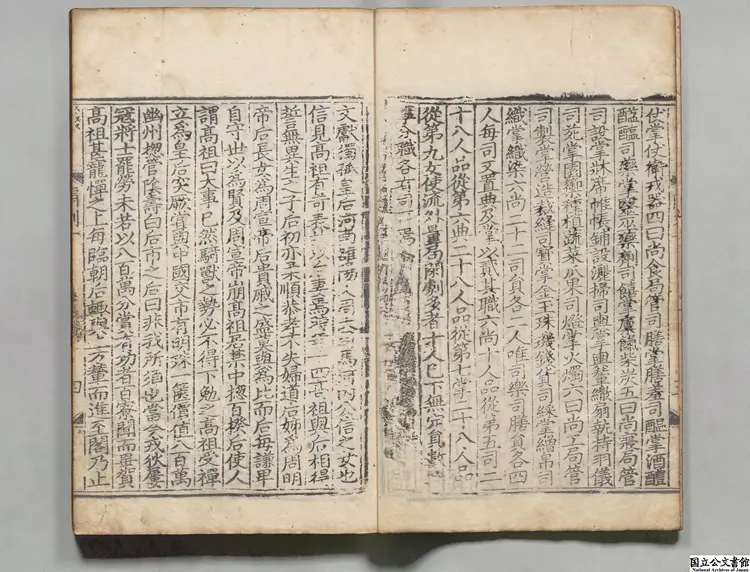 仗掌仗衛戎器四曰尚食局管司膳掌膳羞司醞掌酒醴
醯醢司藥掌醫巫藥劑司饎掌廩餼柴炭五曰尚寢局管
司設掌牀席帷帳鋪設灑掃司輿掌輿輦繖扇執持羽儀
司苑掌園籞種植蔬菜瓜果司燈掌火燭六曰尚工局管
司製掌營造裁縫司寶掌金玉珠璣錢貨司綵掌繒帛司
織掌織染六尚二十二司員各二人唯司樂司膳員各四
人每司又置典及掌以貳其職六尚十人品從第五司二
十八人品從第六典二十八人品從第七掌二十八人品
從第九女使流外量局閑劇多者十人已下無定員數
事分職各有司焉
文獻獨孤皇后河南雒陽人周大司馬河內公信之女也
信見高祖有奇表以后妻焉時十四高祖與后相得
誓無異生之子后初亦柔順恭孝不失婦道后姊爲周明
帝后長女爲周宣帝后貴戚之盛莫與爲比而后每謙卑
自守世以爲賢及周宣帝崩高祖居禁中揔百揆后使人
謂高祖曰大事已然騎獸之勢必不得下勉之高祖受禪
立爲皇后突厥嘗與中國交市有明珠一篋價值八百萬
幽州揔管陰壽白后市之后曰非我所須也當今戎狄屢
寇將士罷勞未若以八百萬分賞有功者百寮聞而畢賀
高祖甚寵憚之上每臨朝后輒與上方輦而進至閤乃止
四
国立公文書館
National Archives of Japan